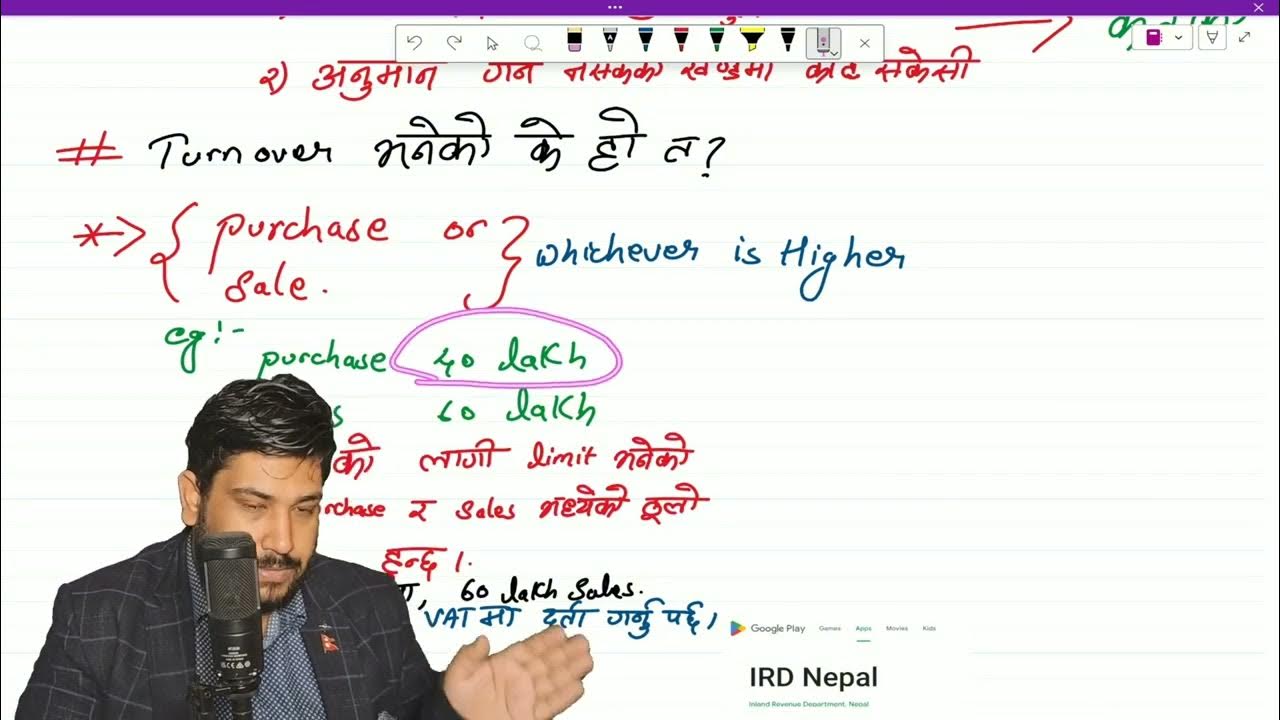 २) अनुमान गर्न नसकेको खण्डमा काट सकेसी
# Turnover भनेको के हो त?
*→ { purchase or
sale. } whichever is Higher
eg:-
purchase 40 lakh
s 60 lakh
को लागी limit भनेको
rchase र sales मध्येको ठूलो
हुन्छ ।
, 60 lakh Sales.
VAT मा दर्ता गर्नु पर्छ ।
Google Play Games Apps Movies Kids
IRD Nepal
Inland Revenue Department, Nepal